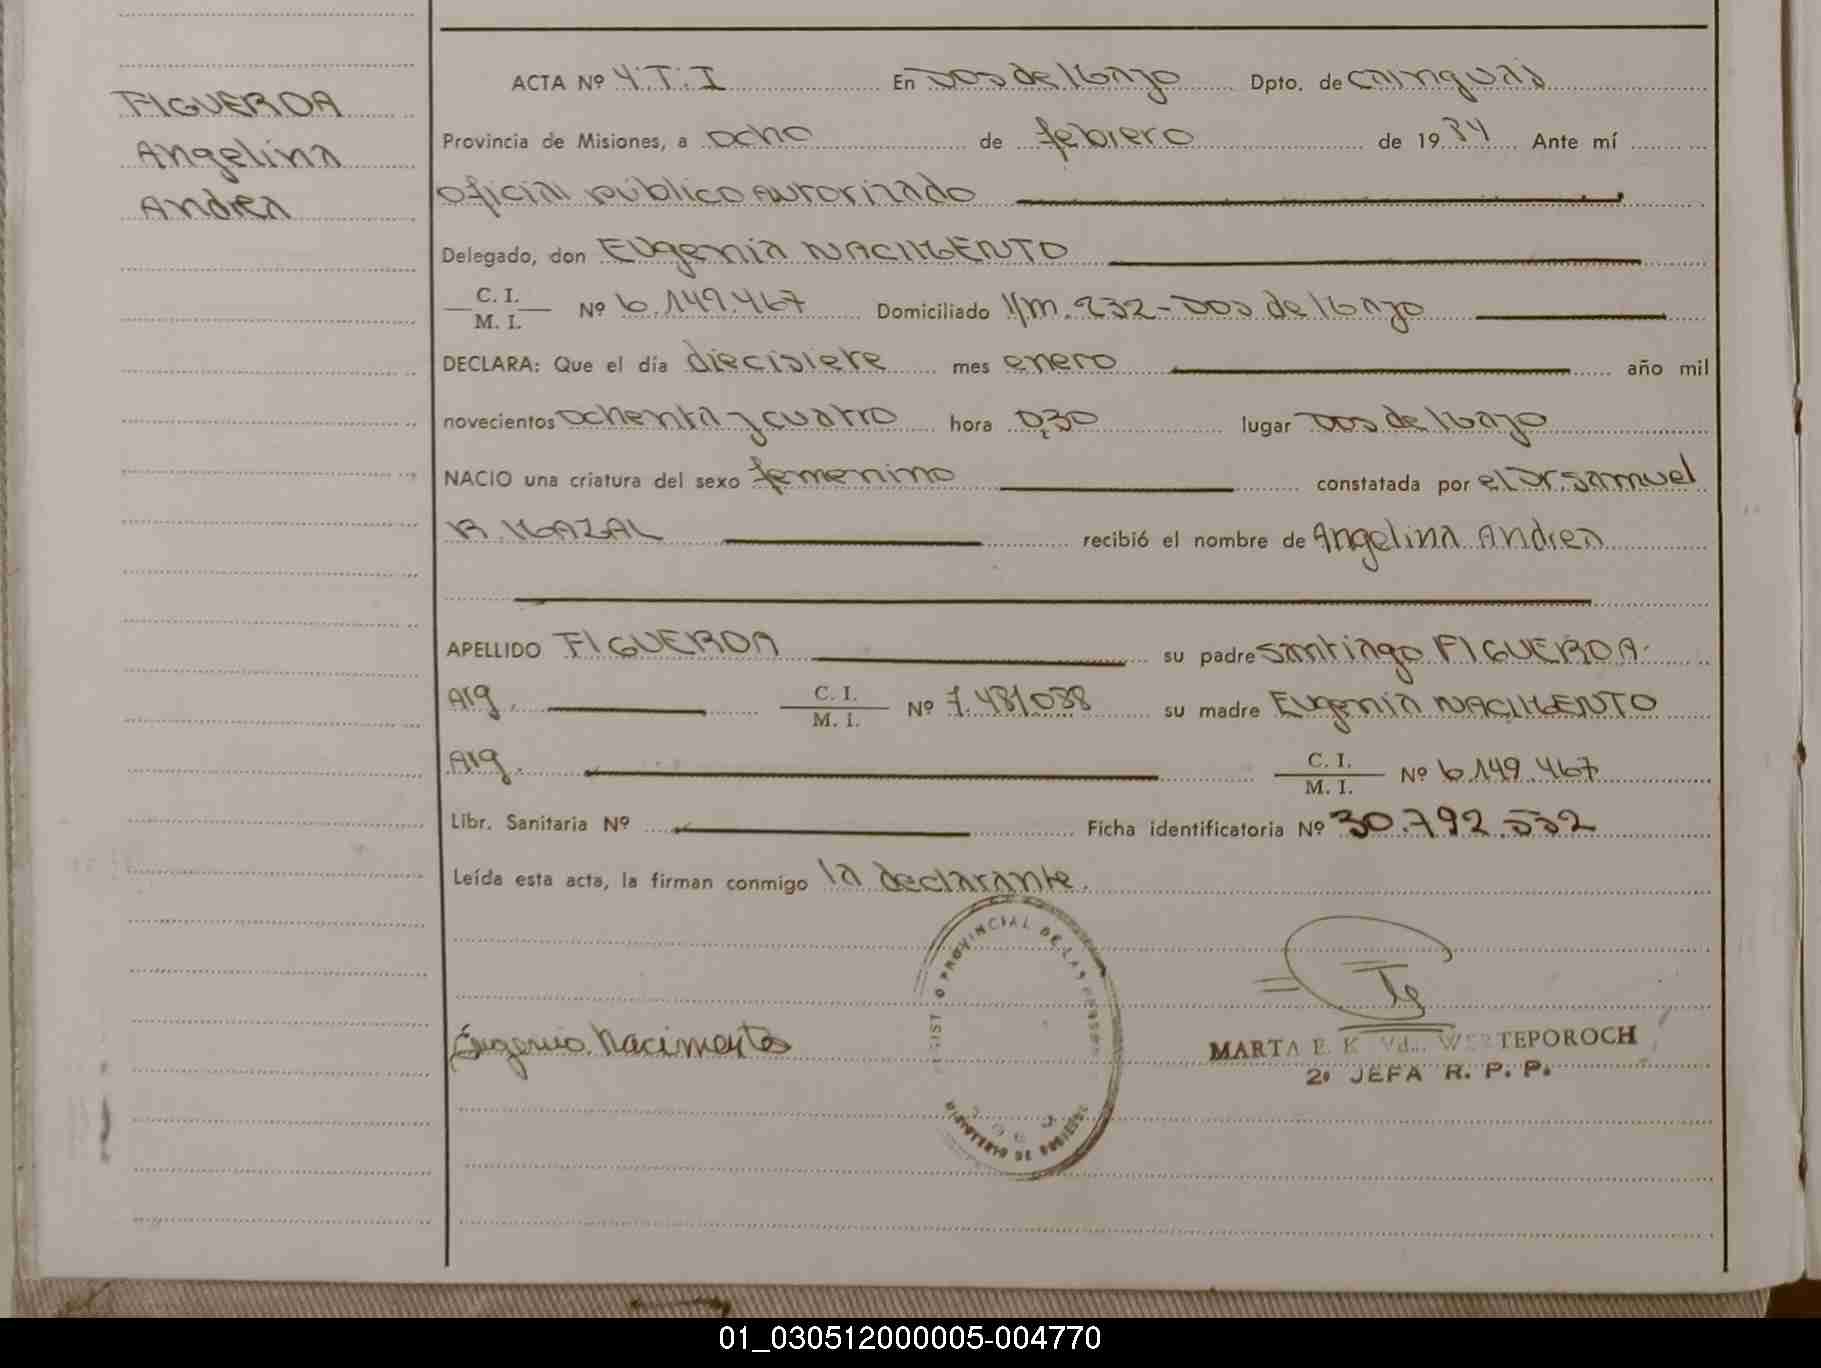 FIGUEROA
Angelina
Andrea
ACTA Nº 4.T.I En Dos de Mayo Dpto. de Cainguás
Provincia de Misiones, a ocho de febrero de 1984 Ante mí
oficial público autorizado
Delegado, don Eugenia NACIMENTO
C. I.
M. I. Nº 6.149.467 Domiciliado 1/m. 232-Dos de Mayo
DECLARA: Que el día diecisiete mes enero año mil
novecientos ochenta y cuatro hora 0,30 lugar Dos de Mayo
NACIO una criatura del sexo femenino constatada por el Dr. Samuel
R. MAZAL recibió el nombre de Angelina Andrea
APELLIDO FIGUEROA su padre Santiago FIGUEROA.
Arg. C. I.
M. I. Nº 7.481.038 su madre Eugenia NACIMENTO
Arg. C. I.
M. I. Nº 6.149.467
Libr. Sanitaria Nº Ficha identificatoria Nº 30.792.532
Leída esta acta, la firman conmigo la declarante.
PROVINCIAL DE LAS
MINISTERIO DE GOBIERNO
Eugenia Nacimento
MARTA E. K Vd. WERTEPOROCH
2º JEFA R. P. P.
01_030512000005-004770